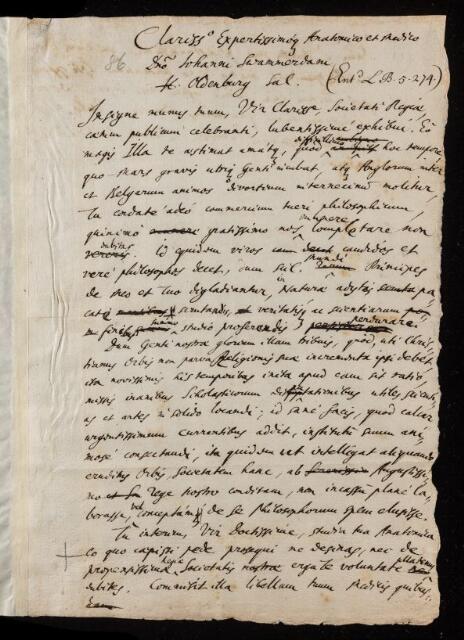 Clariss.o Expertissimoq Anatomico et Medico
86 Dno Johanni Swammerdam
H. Oldenburg Sal. (Entd L.B. 5. 274.)
Insigne munus tuum, Vir Clarissime, Societati Regiæ
cœtum publicum celebranti, lubentissimè exhibui. Eo
magis Illa te æstimat amatq, quod hoc tempore
quo Mars gravis utriq Genti incubat, atq Anglorum inter
et Belgarum animos divortium internecinum molitur,
Tu cordatè adeò commercium tueri philosophicum,
quinimò munere gratissimo nos completare non
dubitas. Id equidem viros candidos et
verè philosophos decet, cum scil. mundi Principes
de meo et tuo digladiantur, in Naturæ adytis
scrutandis, veritatis ac scientiarum
studio proferendis perdurare.
Dum Genti nostræ gloriam illam tribuis, quòd, uti Chris-
tianus Orbis non parva Religionis suæ incrementa ipsi debet,
ita novissimis his temporibus inita apud eam sit ratio,
missis inanibus Scholasticorum disputationibus utiles scienti-
as et artes in solido locandi; id sanè facis, quòd calcar
urgentissimum currentibus addit, institutum suum ani-
mosè consectandi, ita quidem ut intelligat aliquando
eruditus Orbis, Societatem hanc, ab Augustissi-
mo Rege nostro conditam, non incassum planè la-
borasse, vel conceptam de se Philosophorum spem elusisse.
Tu interim, Vir Doctissime, studia tua Anatomica
eo quo cœpisti pede prosequi ne desinas, nec de
propensissima Societatis nostræ erga te voluntate ullatenus
dubites. Commisit illa libellum tuum Medicis quibus-